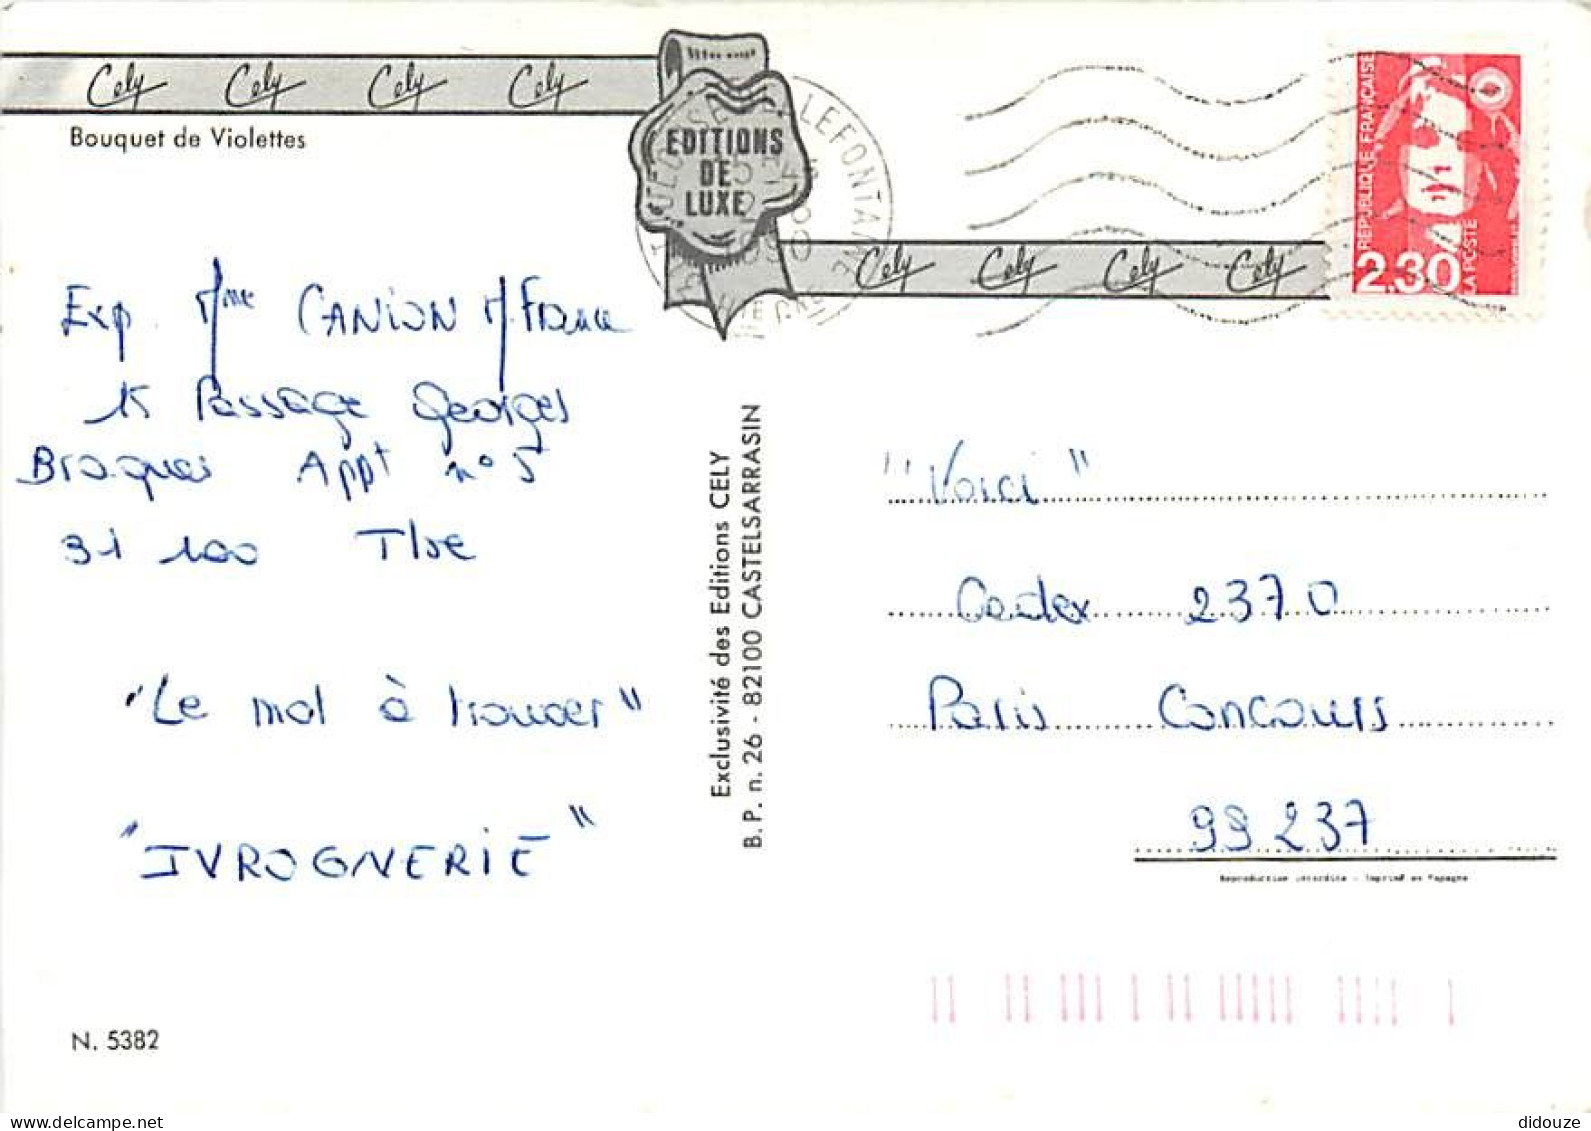 Cely Cely Cely Cely
Bouquet de Violettes
EDITIONS
DE
LUXE
Cely Cely Cely Cely
REPUBLIQUE FRANÇAISE
2,30
LA POSTE
LEFONTAINE
Exp. Mme CANION M/France
15 Passage Georges
Braques Appt n° 5
31 100 Tlse
"Le mot à trouver"
"IVROGNERIE"
N. 5382
Exclusivité des Editions CELY
B.P. n. 26 - 82100 CASTELSARRASIN
"Voici"
Cedex 2370
Paris Concours
99 237
Reproduction interdite - Imprimé en Espagne
delcampe.net
didouze